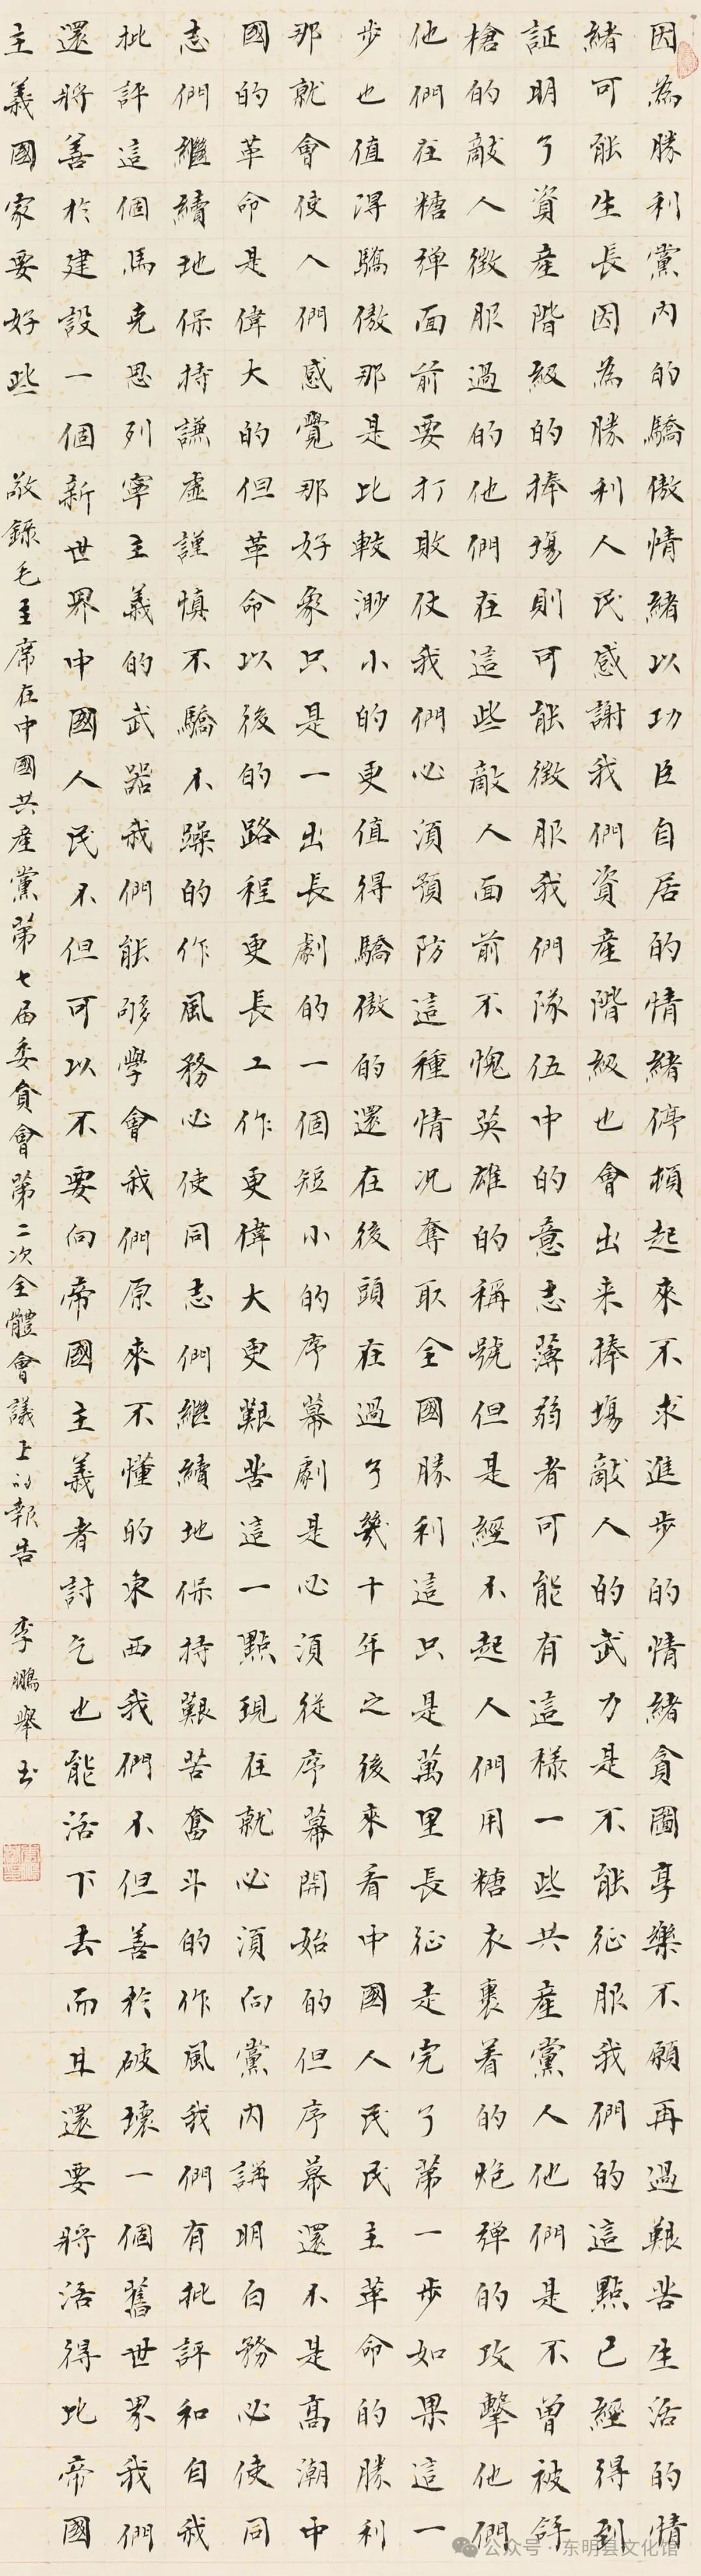 因為勝利黨内的驕傲情緒以功臣自居的情緒停頓起來不求進步的情緒貪圖享樂不願再過艱苦生活的情
緒可能生長因為勝利人民感謝我們資產階級也會出来捧場敵人的武力是不能征服我們的這點已經得到
証明了資產階級的捧場則可能徵服我們隊伍中的意志薄弱者可能有這樣一些共產黨人他們是不曾被拿
槍的敵人徵服過的他們在這些敵人面前不愧英雄的稱號但是經不起人們用糖衣裹着的炮弹的攻擊他們
他們在糖弹面前要打敗仗我們必須預防這種情况奪取全國勝利這只是萬里長征走完了第一步如果這一
步也值得驕傲那是比較渺小的更值得驕傲的還在後頭在過了幾十年之後來看中國人民民主革命的勝利
那就會使人們感覺那好象只是一出長劇的一個短小的序幕劇是必須從序幕開始的但序幕還不是高潮中
國的革命是偉大的但革命以後的路程更長工作更偉大更艱苦這一點現在就必須向黨内講明白務必使同
志們繼續地保持謙虛謹慎不驕不躁的作風務必使同志們繼續地保持艱苦奮斗的作風我們有批評和自我
批評這個馬克思列寧主義的武器我們能够學會我們原來不懂的東西我們不但善於破壞一個舊世界我們
還將善於建設一個新世界中國人民不但可以不要向帝國主義者討乞也能活下去而且還要將活得比帝國
主義國家要好些 敬錄毛主席在中國共產黨第七届委員會第二次全體會議上的報告 李鵬舉书
公众号·东明县文化馆